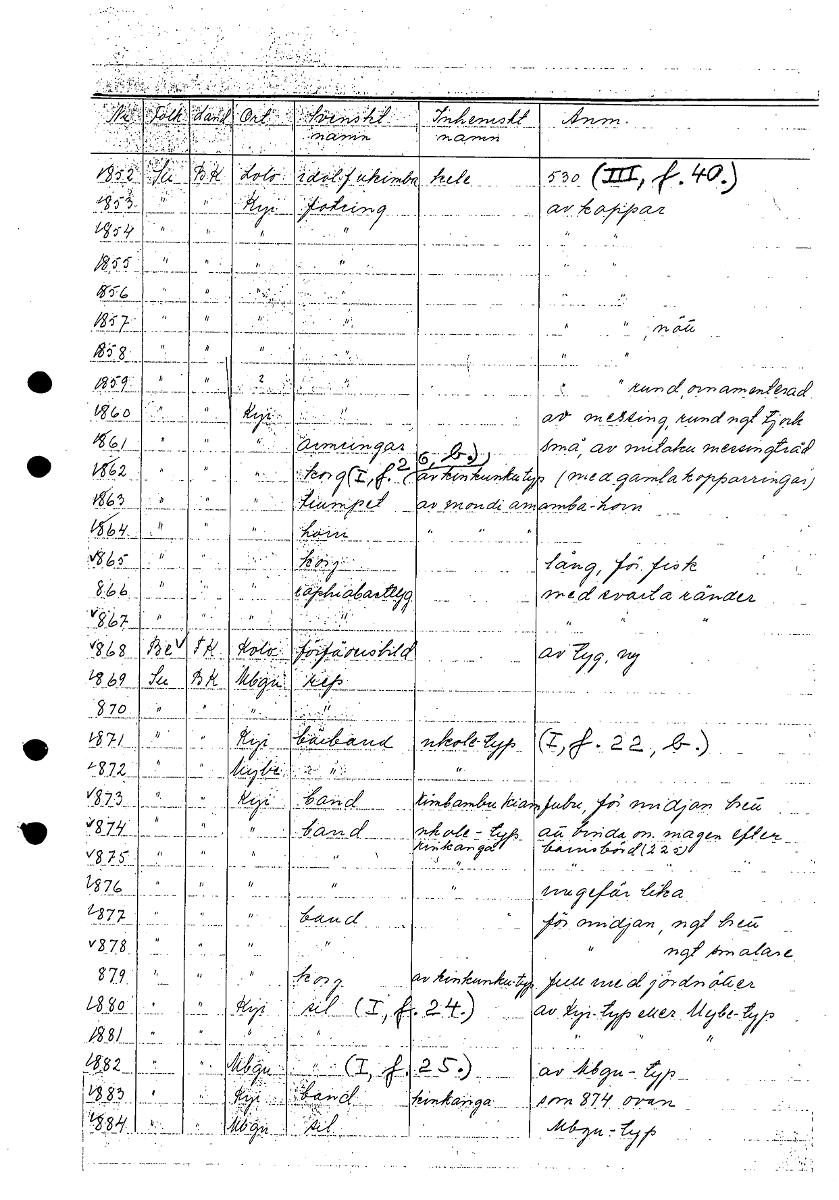 Nr Folk Land Ort Svenskt namn Inhemskt namn Anm.
1852 Su BK Lolo idol fukimba kele 530 (III, f. 40.)
1853 " " Kyi fotring av koppar
1854 " " " " " "
1855 " " " " "
1856 " " " " "
1857 " " " " " ", nött
1858 " " " " " "
1859 " " ? " " " rund, ornamenterad
1860 " " Kyi " av messing, rund ngt tjock
1861 " " " armringar små, av mitaku messingtråd
1862 " " " korg (I, f. 26, b.) av kinkunku typ (med gamla kopparringar)
1863 " " " trumpet av mondi amamba-horn
1864 " " " horn " " "
865 " " " korg lång, för fisk
866 " " " raphiabasttyg med svarta ränder
867 " " " " " " "
868 Be FK Kolo förfädersbild av tyg, ny
869 Su BK Mbgu rep
870 " " " "
871 " " Kyi bärband nkole-typ (I, f. 22, b.)
872 " " Nybe " " "
873 " " Kyi band kimbambu kiamfubu, för midjan bred
874 " " " band nkole-typ att binda om magen efter
kinkanga barnsbörd (225)
875 " " " " "
876 " " " " " ungefär lika
877 " " " band " för midjan, ngt bred
878 " " " " " ngt smalare
879 " " " korg av kinkunku-typ full med jordnötter
880 " " Kyi sil (I, f. 24.) av Kyi-typ eller Nybe-typ
1881 " " " " " "
1882 " " Mbgu " (I, f. 25.) av Mbgu-typ
1883 " " Kyi band kinkanga som 874 ovan
1884 " " Mbgu sil Mbgu-typ